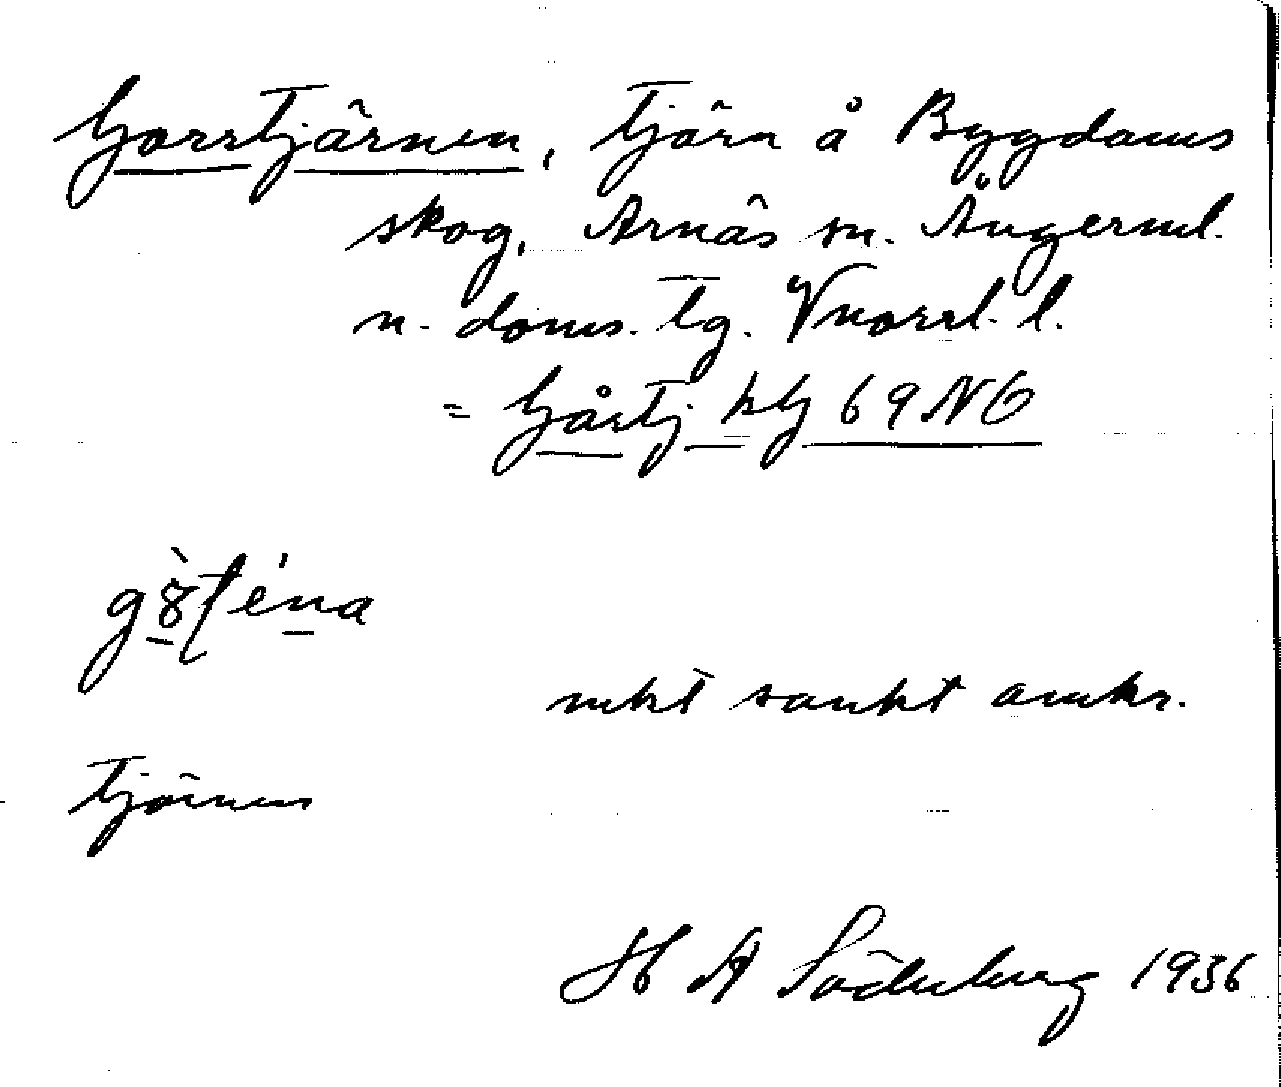 Gorrtjärnen, tjärn å Bygdoms
skog, Arnäs sn. Ångerml.
n. doms. tg. Vnorrl. l.
= Gårtj kbj 69 NO
tjärnen
mkt sankt omkr.
H A Söderberg 1936